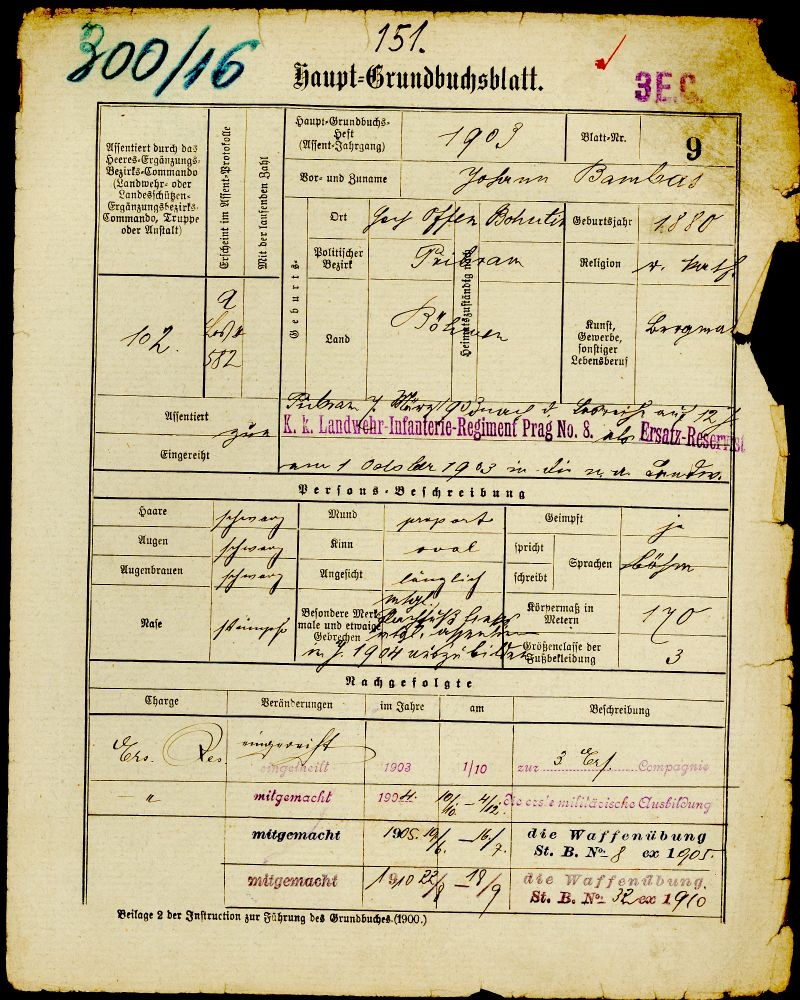 300/16
151.
Haupt-Grundbuchsblatt.
3E.C.
Assentiert durch das Heeres-Ergänzungs-Bezirks-Commando (Landwehr- oder Landesschützen-Ergänzungsbezirks-Commando, Truppe oder Anstalt)
Erscheint im Assent-Protokolle
Mit der laufenden Zahl
Haupt-Grundbuchs-Heft (Assent-Jahrgang)
1903
Blatt-Nr.
9
Vor- und Zuname
Johann Bambas
Geburts-
Ort
Heimatszuständig nach
Bohutin
Geburtsjahr
1880
Politischer Bezirk
Pribram
Religion
r. kath.
Land
Böhmen
Kunst, Gewerbe, sonstiger Lebensberuf
102.
a
582
Assentiert
Pribram 7. März 1903 nach d. auf 12 J.
zur
K. k. Landwehr-Infanterie-Regiment Prag No. 8. als Ersatz-Reservist
Eingereiht
am 1 October 1903 in die
Persons-Beschreibung
Haare
schwarz
Mund
proport
Geimpft
ja
Augen
schwarz
Kinn
oval
spricht
Sprachen
böhm
Augenbrauen
schwarz
Angesicht
länglich
schreibt
Nase
stumpf
Besondere Merkmale und etwaige Gebrechen
mtgl.
in J. 1904 auszubilden
Körpermaß in Metern
170
Größenclasse der Fußbekleidung
3
Nachgefolgte
Charge
Veränderungen
im Jahre
am
Beschreibung
Ers. Res.
eingereiht
eingeteilt
1903
1/10
zur 3 Ers. Compagnie
"
mitgemacht
1904
10/10. – 4/12.
die erste militärische Ausbildung
mitgemacht
1905.
19/6. – 16/7.
die Waffenübung
St. B. No. 8 ex 1905.
mitgemacht
1910
22/8 – 18/9
die Waffenübung.
St. B. No. 32 ex 1910
Beilage 2 der Instruction zur Führung des Grundbuches (1900.)